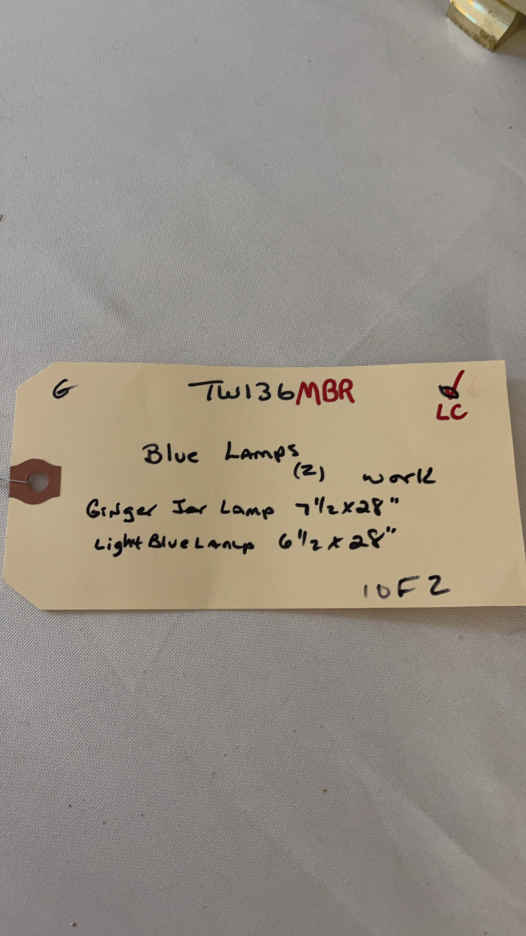 G TW136MBR
LC
Blue Lamps
(2) work
Ginger Jar Lamp 7 1/2 x 28"
Light Blue Lamp 6 1/2 x 28"
1 OF 2